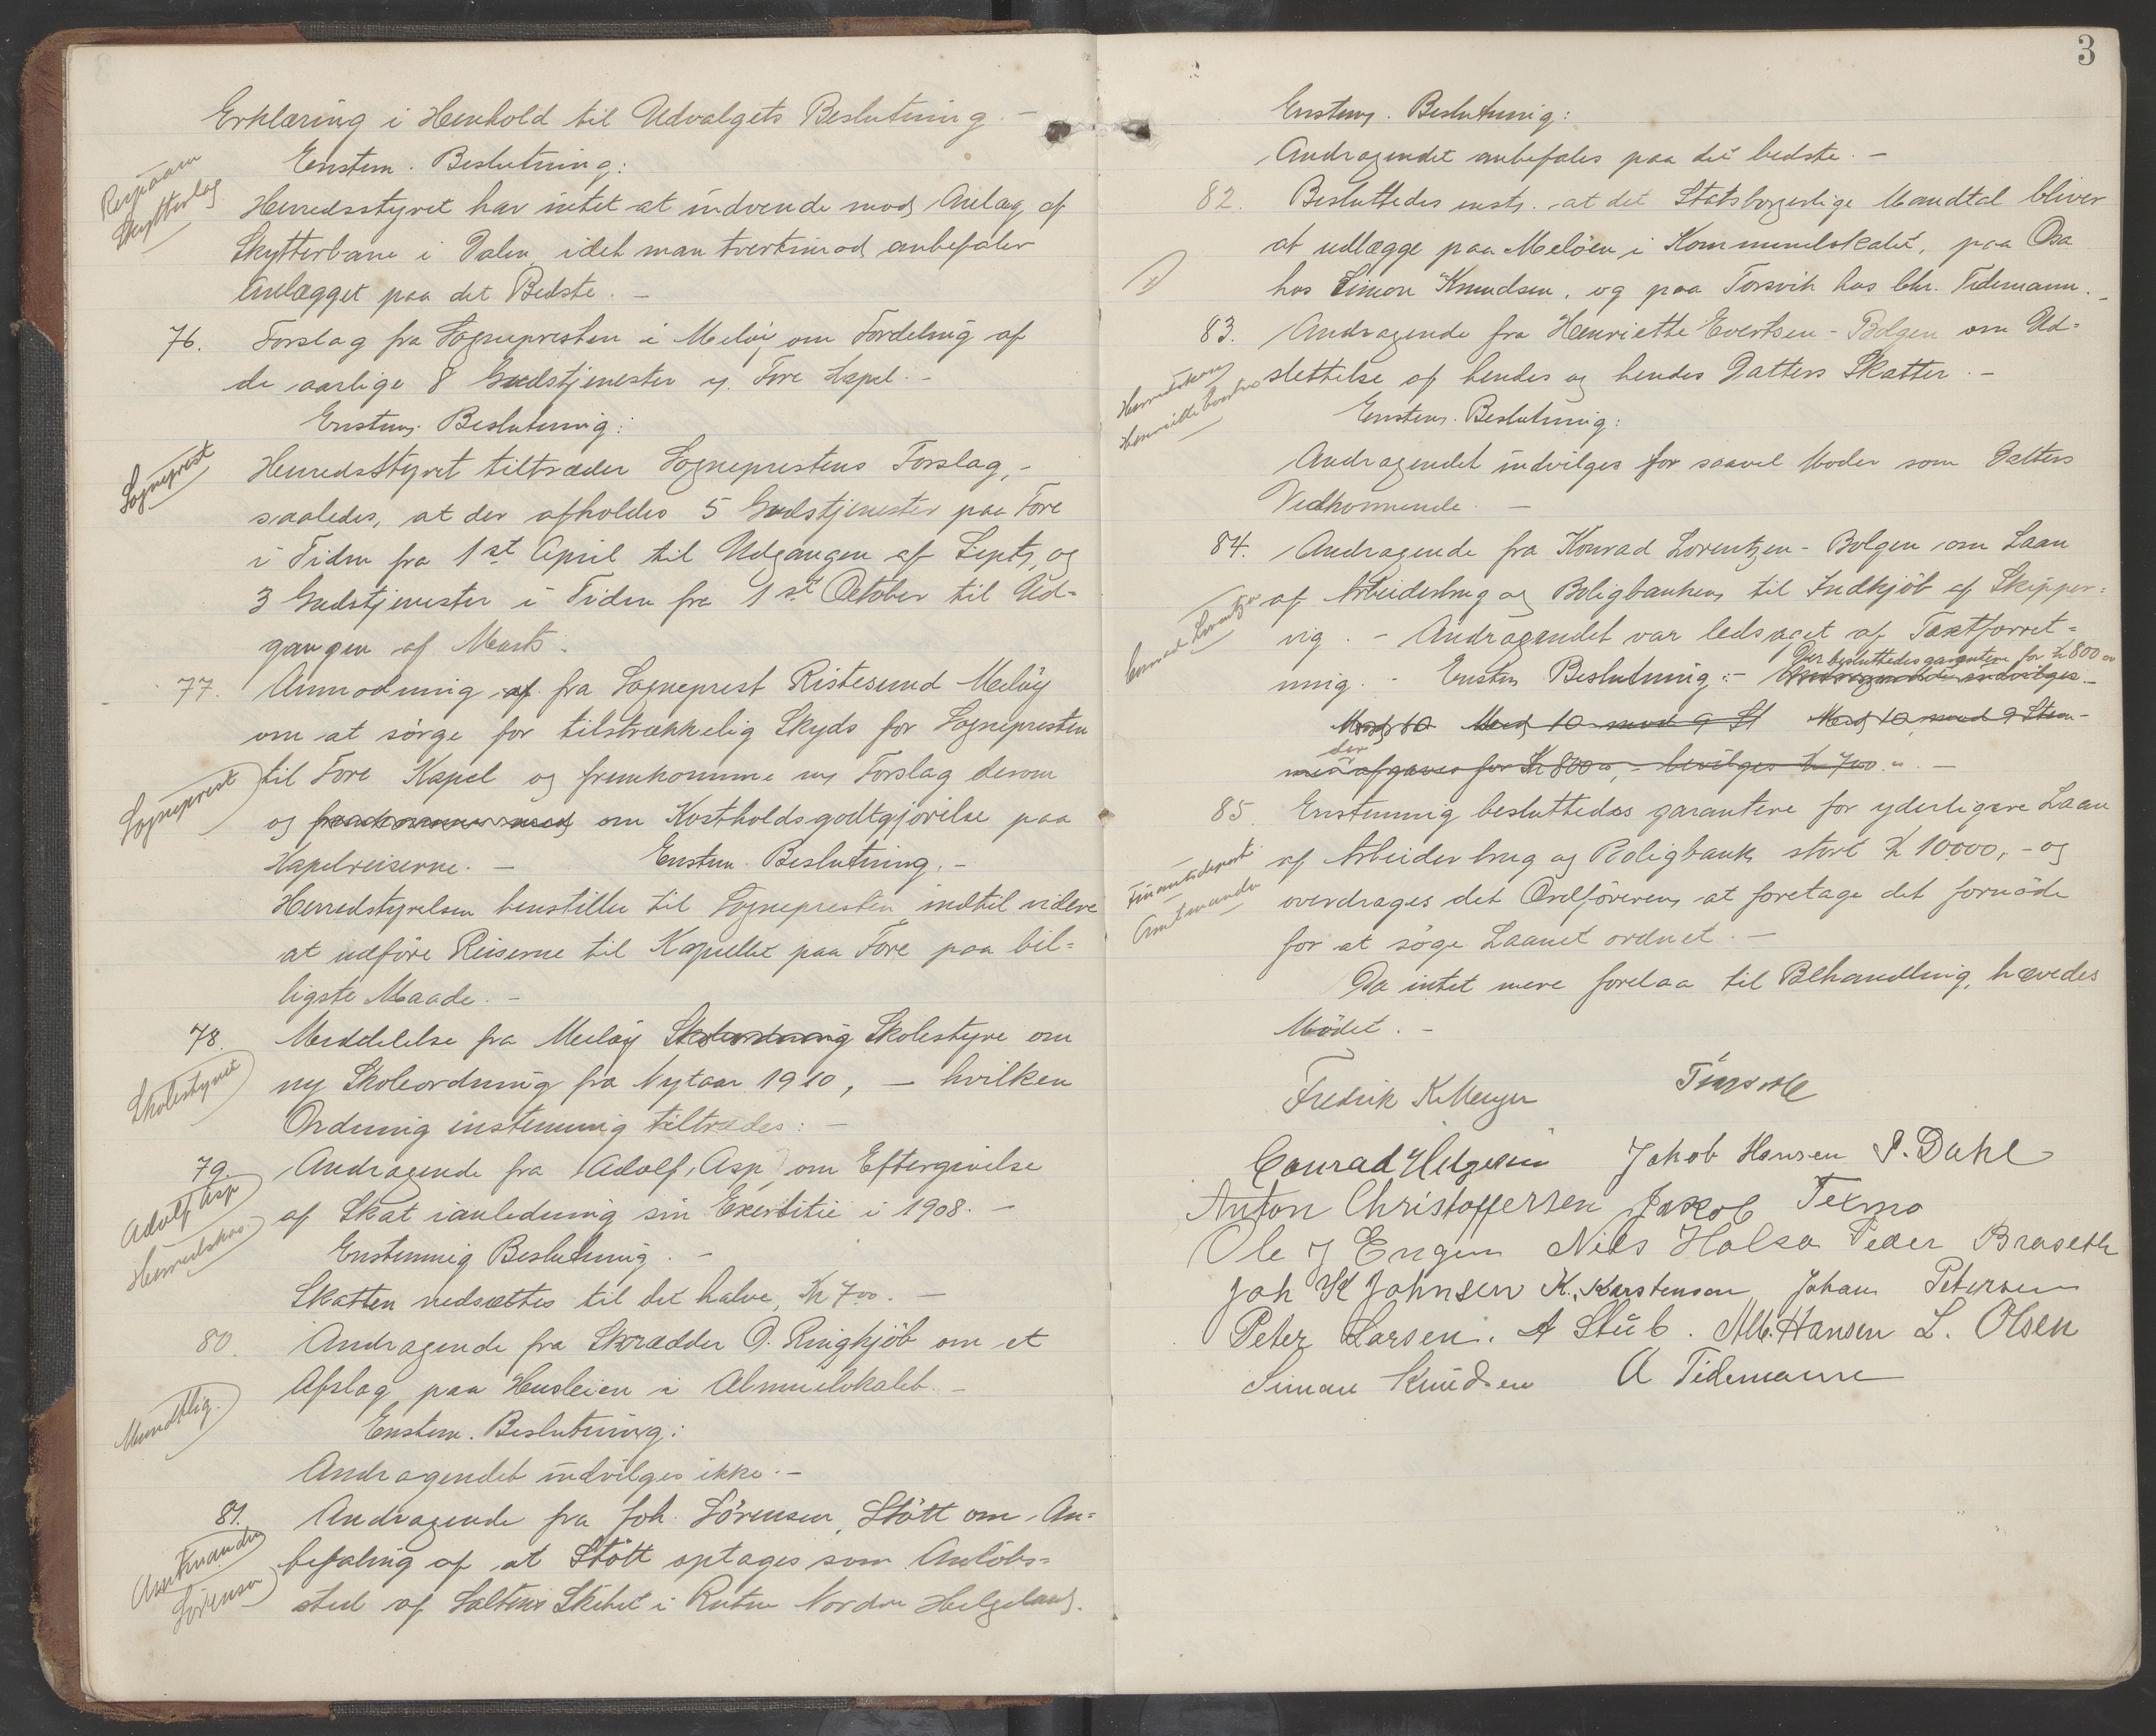 Erklæring i Henhold til Udvalgets Beslutning. -
Enstem. Beslutning:
Reipaaen
Skytterlag
Herredsstyret har intet at indvende mod Anlæg af
Skytterbane i Dalen, idet man tvertimod anbefaler
Anlægget paa det Bedste. -
76. Forslag fra Sognepresten i Meløy om Fordeling af
de aarlige 8 Gudstjenester i Fore Kapel. -
Enstem. Beslutning:
Sogneprest
Herredsstyret tiltræder Sogneprestens Forslag, -
saaledes, at der afholdes 5 Gudstjenester paa Fore
i Tiden fra 1st April til Udgangen af Septb, og
3 Gudstjenester i Tiden fra 1st October til Ud=
gangen af Marts.
77. Anmodning af fra Sogneprest Ristesund Meløy
om at sørge for tilstrækkelig Skyds for Sognepresten
Sogneprest
til Fore Kapel og fremkomme m Forslag derom
og om Kostholdsgodtgjørelse paa
Kapelreiserne. - Enstem. Beslutning. -
Herredstyrelsen henstiller til Sognepresten indtil videre
at udføre Reiserne til Kapellet paa Fore paa bil=
ligste Maade. -
78. Meddelelse fra Meløy Skoleordning Skolestyre om
Skolestyret
ny Skoleordning fra Nytaar 1910, - hvilken
Ordning enstemmig tiltrædes: -
79. Andragende fra Adolf Asp, om Eftergivelse
Adolf Asp
Herredskas.
af Skat ianledning sin Exersitie i 1908. -
Enstemmig Beslutning. -
Skatten nedsættes til det halve, Kr 7.00. -
80. Andragende fra Skrædder O. Ringkjøb om et
Afslag paa Husleien i Almuelokalet. -
Mundtlig.
Enstem. Beslutning:
Andragendet indvilges ikke. -
81. Andragende fra Joh. Sørensen, Støtt om An=
Amtmanden
Sørensen
befaling af at Støtt optages som Anløbs=
sted af Saltens Skibet i Ruten Nordre Helgeland.
3
Enstem. Beslutning:
Andragendet anbefales paa det bedste. -
82. Besluttedes enst. at det Statsborgerlige Mandtal bliver
at udlægge paa Meløen i Kommunelokalet, paa Osa
hos Simon Knudsen, og paa Torsvik hos Chr. Tidemann. -
83. Andragende fra Henriette Evertsen - Bolgen om Ud=
Herredskas
Henriette
slettelse af hendes og hendes Datters Skatter. -
Enstem. Beslutning:
Andragendet indvilges for saavel Moder som Datters
Vedkommende. -
84. Andragende fra Konrad Lorentzen - Bolgen om Laan
Conrad Lorentzen
af Arbeiderbrug og Boligbanken til Indkjøb af Skipper=
vig. - Andragendet var ledsaget af Taxtforret=
ning. - Enstem Beslutning: - Andragendet indvilges. -
Der besluttedes garantere for Kr 800.00
Mod 10 Mod 10 mod 9 St Mod 10 mod 9 Stem-
der
afgaves for Kr 800.00, - bevilges Kr 700.00. -
85. Enstemmig besluttedes garantere for yderligere Laan
Finantsdepart.
Amtmanden
af Arbeiderbrug og Boligbank stort Kr 10000, - og
overdrages det Ordføreren at foretage det fornøde
for at søge Laanet ordnet. -
Da intet mere forelaa til Behandling, hævedes
Mødet. -
Fredrik K Meyer
Conrad Helgesen Jakob Hansen P. Dahl
Anton Christoffersen Jakob Texmo
Ole J Engen Nils Halsa Peder Braseth
Joh K Johnsen K. Karstensen Johan Petersen
Peter Larsen. A Stub. Alb. Hansen L. Olsen
Simon Knudsen A Tidemann